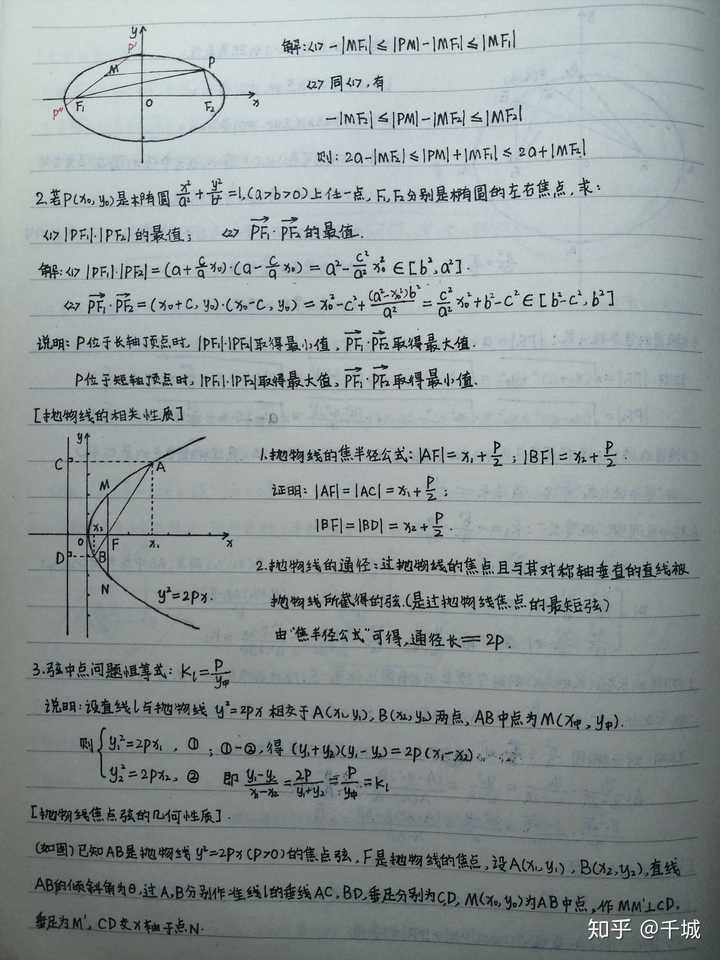 y
P'
M
P
F₁
O
F₂
x
P''
解:<1> -|MF₁| ≤ |PM|-|MF₁| ≤ |MF₁|
<2> 同<1>,有
-|MF₂| ≤ |PM|-|MF₂| ≤ |MF₂|
则: 2a-|MF₂| ≤ |PM|+|MF₁| ≤ 2a+|MF₂|
2.若P(x₀,y₀)是椭圆 x²/a² + y²/b² =1,(a>b>0)上任一点,F₁,F₂分别是椭圆的左右焦点,求:
<1> |PF₁|·|PF₂|的最值; <2> PF₁·PF₂的最值.
解:<1> |PF₁|·|PF₂| = (a+c/a x₀)·(a-c/a x₀) = a²-c²/a² x₀² ∈ [b²,a²].
<2> PF₁·PF₂ = (x₀+c, y₀)·(x₀-c, y₀) = x₀²-c²+(a²-x₀²)b²/a² = c²/a² x₀²+b²-c² ∈ [b²-c², b²]
说明: P位于长轴顶点时, |PF₁|·|PF₂|取得最小值, PF₁·PF₂取得最大值.
P位于短轴顶点时, |PF₁|·|PF₂|取得最大值, PF₁·PF₂取得最小值.
[抛物线的相关性质]
y
C
A
M
O
x₂
F
x₁
x
D
B
N
y²=2px.
1.抛物线的焦半径公式: |AF| = x₁+p/2 ; |BF| = x₂+p/2 .
证明: |AF| = |AC| = x₁+p/2 ;
|BF| = |BD| = x₂+p/2 .
2.抛物线的通径:过抛物线的焦点且与其对称轴垂直的直线被
抛物线所截得的弦.(是过抛物线焦点的最短弦)
由“焦半径公式”可得,通径长=2p.
3.弦中点问题恒等式: K_l = p/y中
说明:设直线l与抛物线 y²=2px 相交于A(x₁,y₁), B(x₂,y₂)两点, AB中点为M(x中, y中).
则 { y₁²=2px₁, ① ; ①-②,得 (y₁+y₂)(y₁-y₂)=2p(x₁-x₂).
y₂²=2px₂, ② 即 y₁-y₂/x₁-x₂ = 2p/y₁+y₂ = p/y中 = K_l
[抛物线焦点弦的几何性质].
(如图)已知AB是抛物线 y²=2px(p>0)的焦点弦, F是抛物线的焦点,设A(x₁,y₁), B(x₂,y₂),直线
AB的倾斜角为θ,过A,B分别作准线l的垂线AC, BD,垂足分别为C,D, M(x₀,y₀)为AB中点,作MM'⊥CD,
垂足为M', CD交x轴于点N.
知乎 @千城